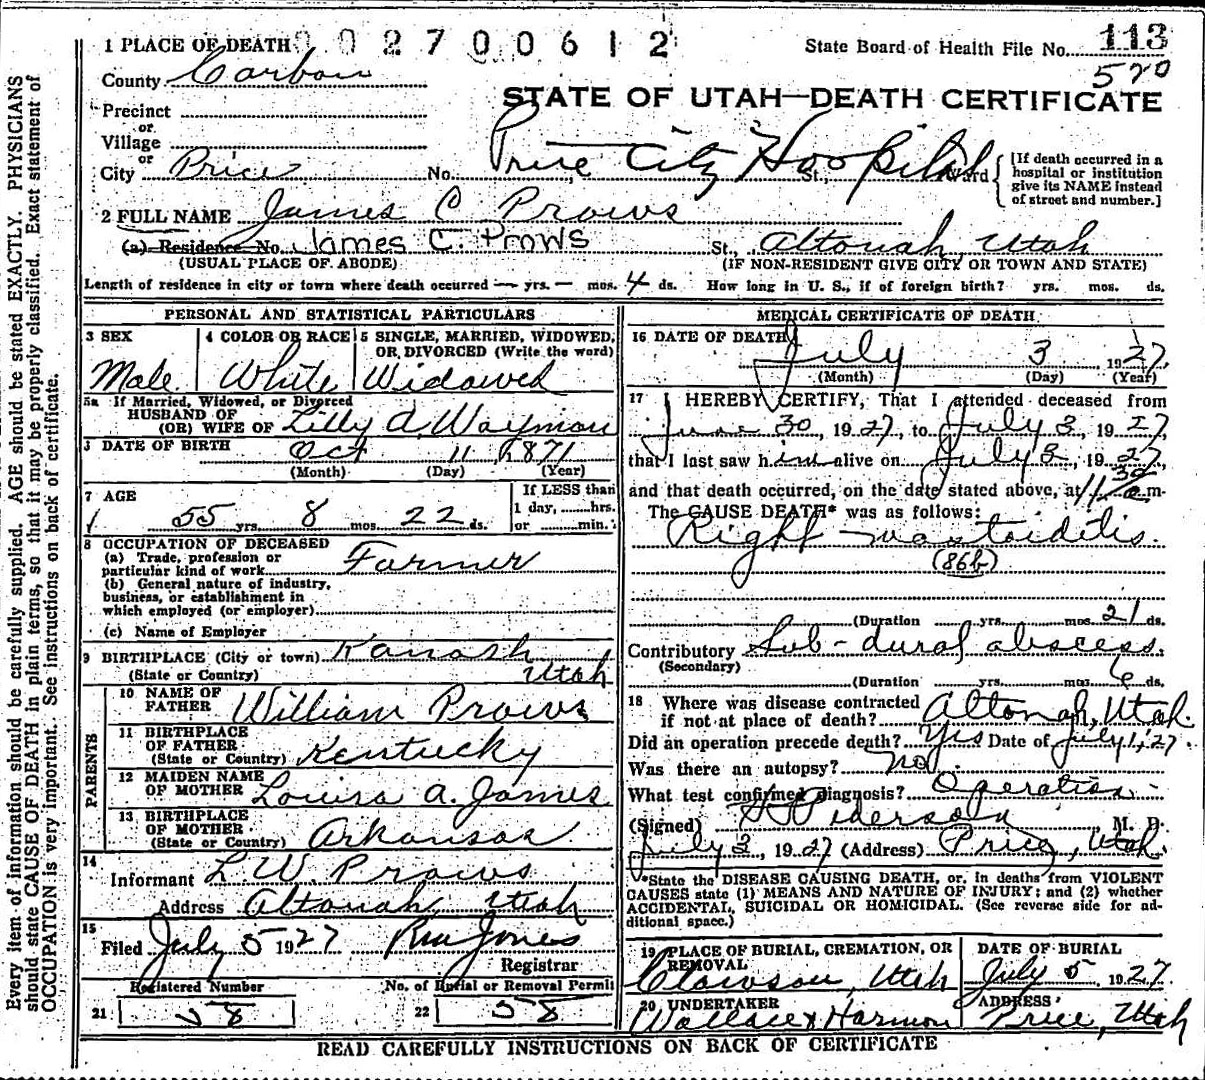 1 PLACE OF DEATH 002700612 State Board of Health File No. 113
570
County Carbon
STATE OF UTAH—DEATH CERTIFICATE
Precinct
or
Village
or
City Price No. Price City Hospital St., Ward
[If death occurred in a hospital or institution give its NAME instead of street and number.]
2 FULL NAME James C Prows
(a) Residence No. James C. Prows St., Altonah, Utah
(USUAL PLACE OF ABODE) (IF NON-RESIDENT GIVE CITY OR TOWN AND STATE)
Length of residence in city or town where death occurred — yrs. — mos. 4 ds. How long in U. S., if of foreign birth? yrs. mos. ds.
PERSONAL AND STATISTICAL PARTICULARS
3 SEX 4 COLOR OR RACE 5 SINGLE, MARRIED, WIDOWED,
OR DIVORCED (Write the word)
Male White Widowed
5a If Married, Widowed, or Divorced
HUSBAND OF
(OR) WIFE OF Lilly A. Wayman
DATE OF BIRTH Oct 11 1871
(Month) (Day) (Year)
7 AGE If LESS than
1 day, hrs.
55 yrs. 8 mos. 22 ds. or min.
8 OCCUPATION OF DECEASED
(a) Trade, profession or
particular kind of work Farmer
(b) General nature of industry,
business, or establishment in
which employed (or employer)
(c) Name of Employer
9 BIRTHPLACE (City or town) Kanosh
(State or Country) Utah
PARENTS
10 NAME OF
FATHER William Prows
11 BIRTHPLACE
OF FATHER
(State or Country) Kentucky
12 MAIDEN NAME
OF MOTHER Louisa A. James
13 BIRTHPLACE
OF MOTHER
(State or Country) Arkansas
14
Informant L. W. Prows
Address Altonah Utah
15
Filed July 5 1927 Jones
Registrar
Registered Number No. of Burial or Removal Permit
21 58 22 58
MEDICAL CERTIFICATE OF DEATH
16 DATE OF DEATH July 3 1927
(Month) (Day) (Year)
17 I HEREBY CERTIFY, That I attended deceased from
June 30, 1927, to July 3, 1927,
that I last saw him alive on July 3, 1927,
and that death occurred, on the date stated above, at 11 30 a m.
The CAUSE DEATH* was as follows:
Right mastoiditis.
(86b)
(Duration yrs. mos. 21 ds.
Contributory Sub-dural abscess.
(Secondary)
(Duration yrs. mos. 6 ds.
18 Where was disease contracted
if not at place of death? Altonah, Utah.
Did an operation precede death? Yes Date of July 1, '27.
Was there an autopsy? No
What test confirmed diagnosis? Operation
(Signed) Pederson, M. D.
July 3, 1927 (Address) Price, Utah.
*State the DISEASE CAUSING DEATH, or, in deaths from VIOLENT
CAUSES state (1) MEANS AND NATURE OF INJURY; and (2) whether
ACCIDENTAL, SUICIDAL OR HOMICIDAL. (See reverse side for ad-
ditional space.)
19 PLACE OF BURIAL, CREMATION, OR
REMOVAL DATE OF BURIAL
Clawson, Utah July 5, 1927
20 UNDERTAKER ADDRESS
Wallace & Harmon Price, Utah
READ CAREFULLY INSTRUCTIONS ON BACK OF CERTIFICATE
Every item of information should be carefully supplied. AGE should be stated EXACTLY. PHYSICIANS
should state CAUSE OF DEATH in plain terms, so that it may be properly classified. Exact statement of
OCCUPATION is very important. See instructions on back of certificate.